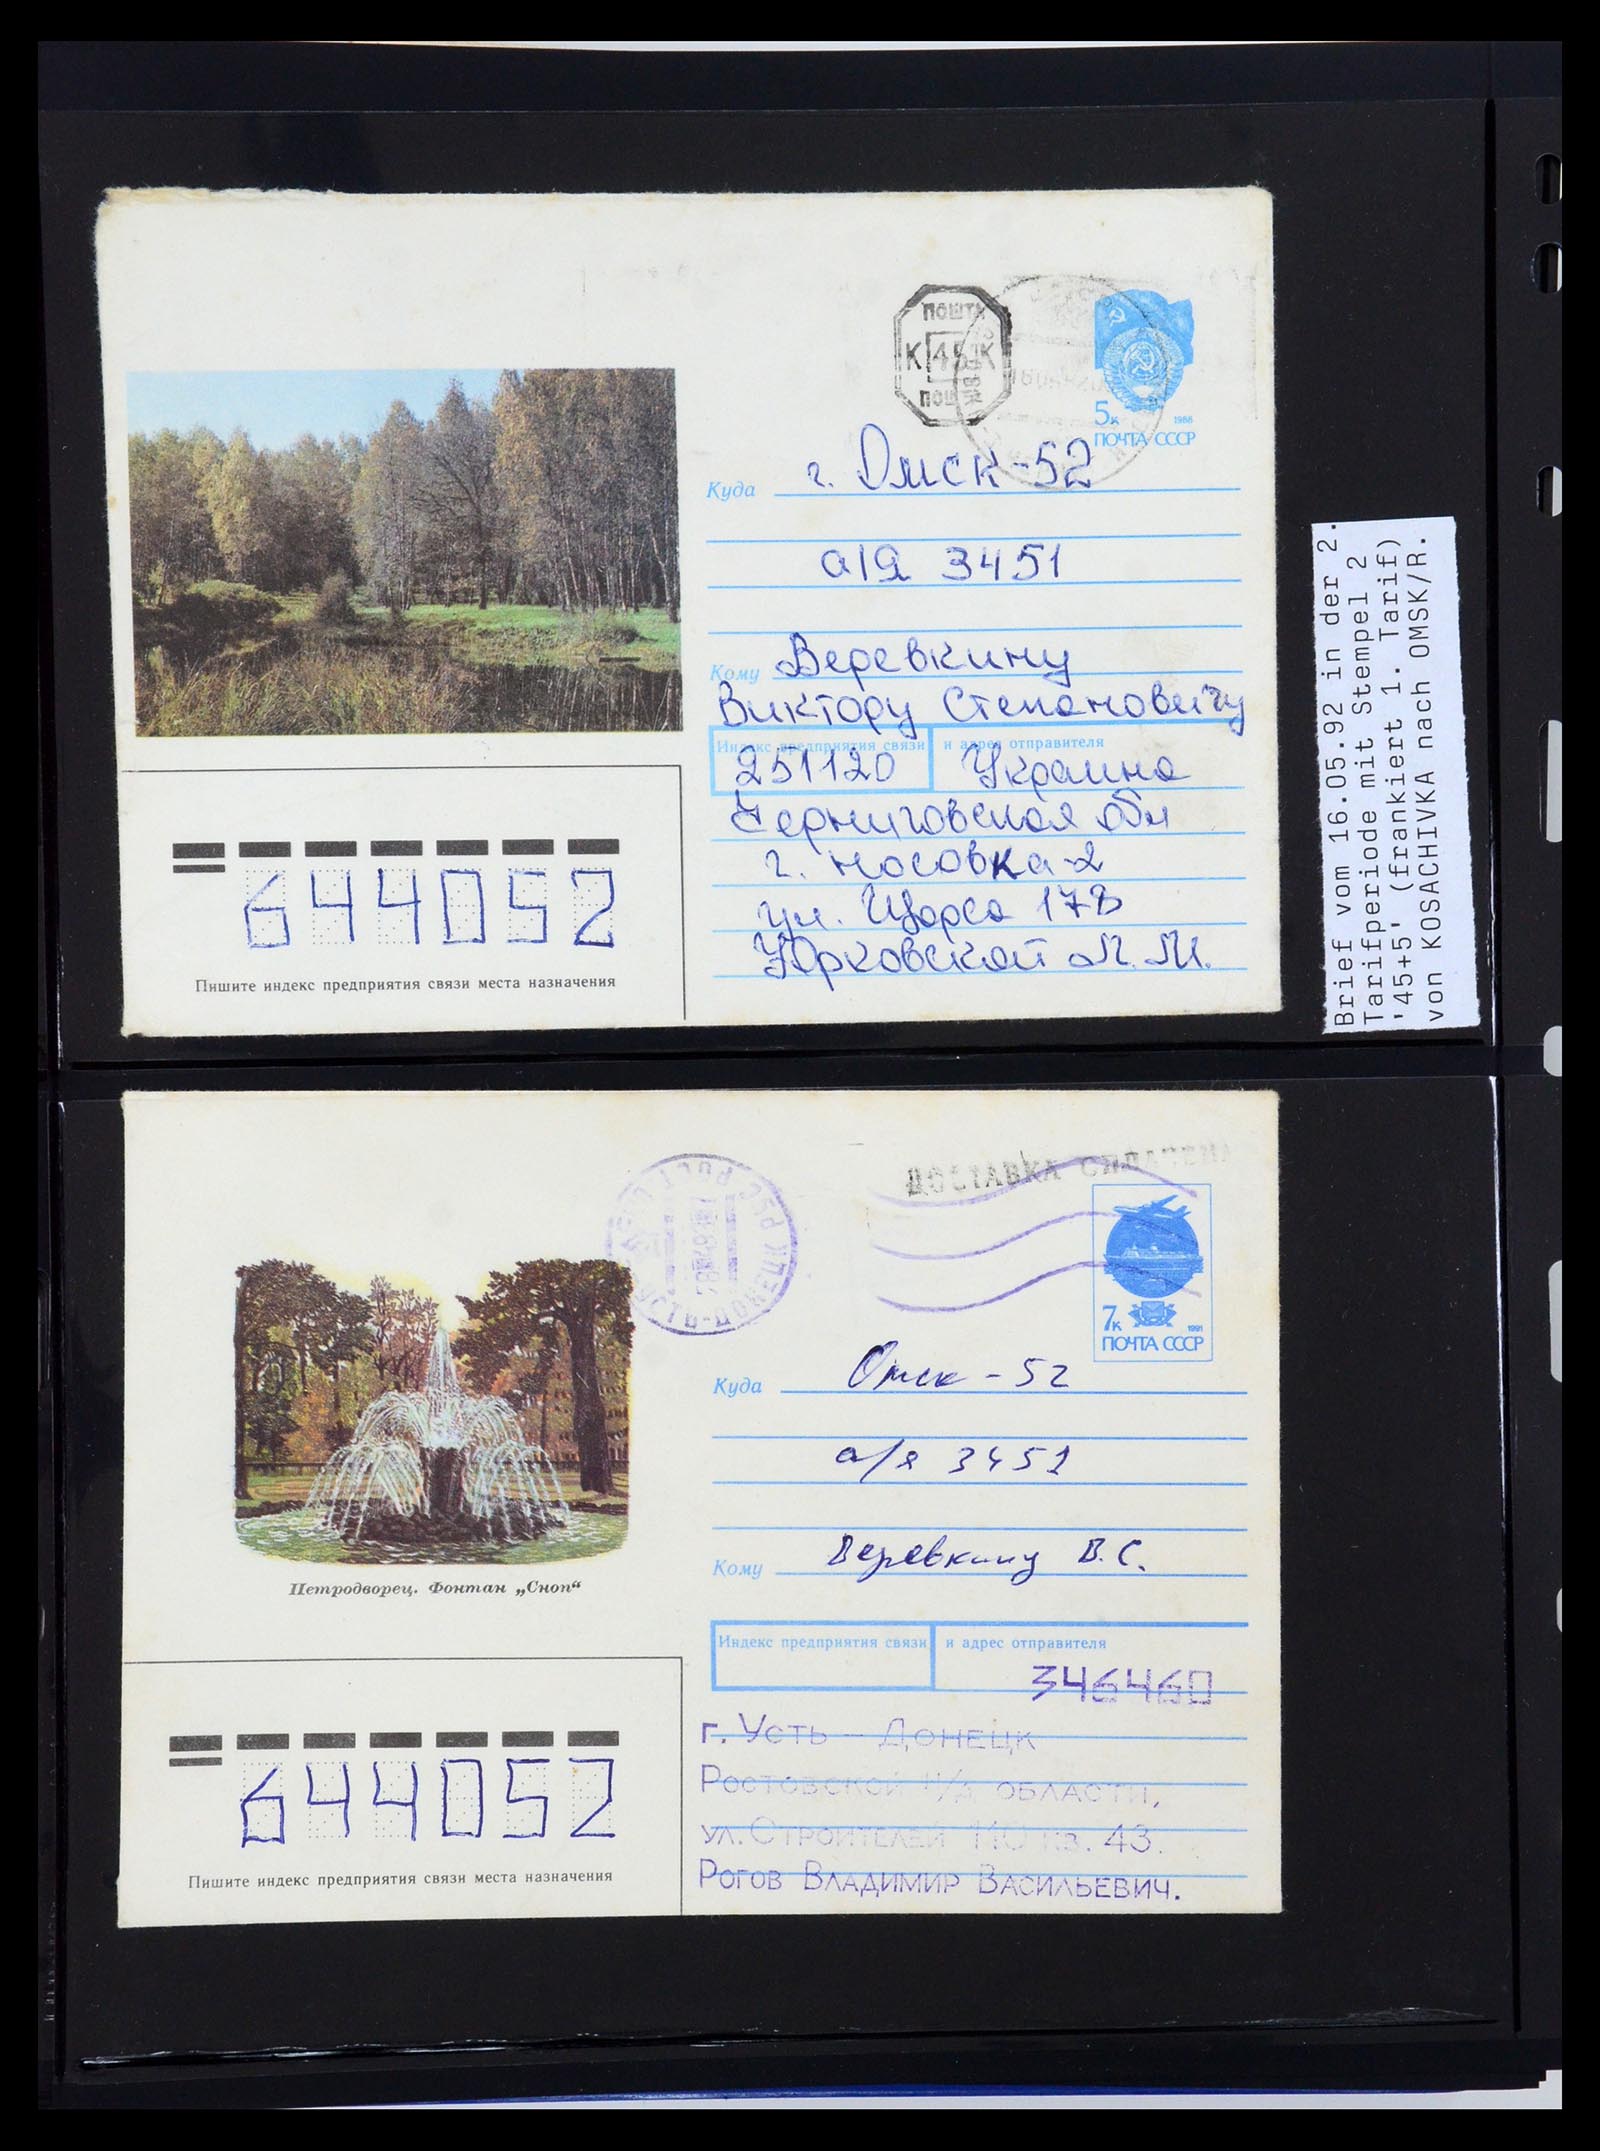 ПОШТА
К 45 К
ПОШ
5к 1988
ПОЧТА СССР
Куда г. Омск-52
а/я 3451
Кому Веревкину
Виктору Степановичу
Индекс предприятия связи и адрес отправителя
251120 Украина
Черниговская обл
г. Носовка-2
ул. Щорса 17В
Юрковской М.М.
644052
Пишите индекс предприятия связи места назначения
Brief vom 16.05.92 in der 2.
Tarifperiode mit Stempel 2
'45+5' (frankiert 1. Tarif)
von KOSACHIVKA nach OMSK/R.
ДОСТАВКА СПЛАЧЕНА
УСТЬ-ДОНЕЦК РОСТ
7к 1991
ПОЧТА СССР
Куда Омск-52
а/я 3451
Кому Веревкину В.С.
Петродворец. Фонтан „Сноп“
Индекс предприятия связи и адрес отправителя
346460
г. Усть-Донецк
Ростовской н/д области,
ул. Строителей 110 кв. 43.
Рогов Владимир Васильевич.
644052
Пишите индекс предприятия связи места назначения